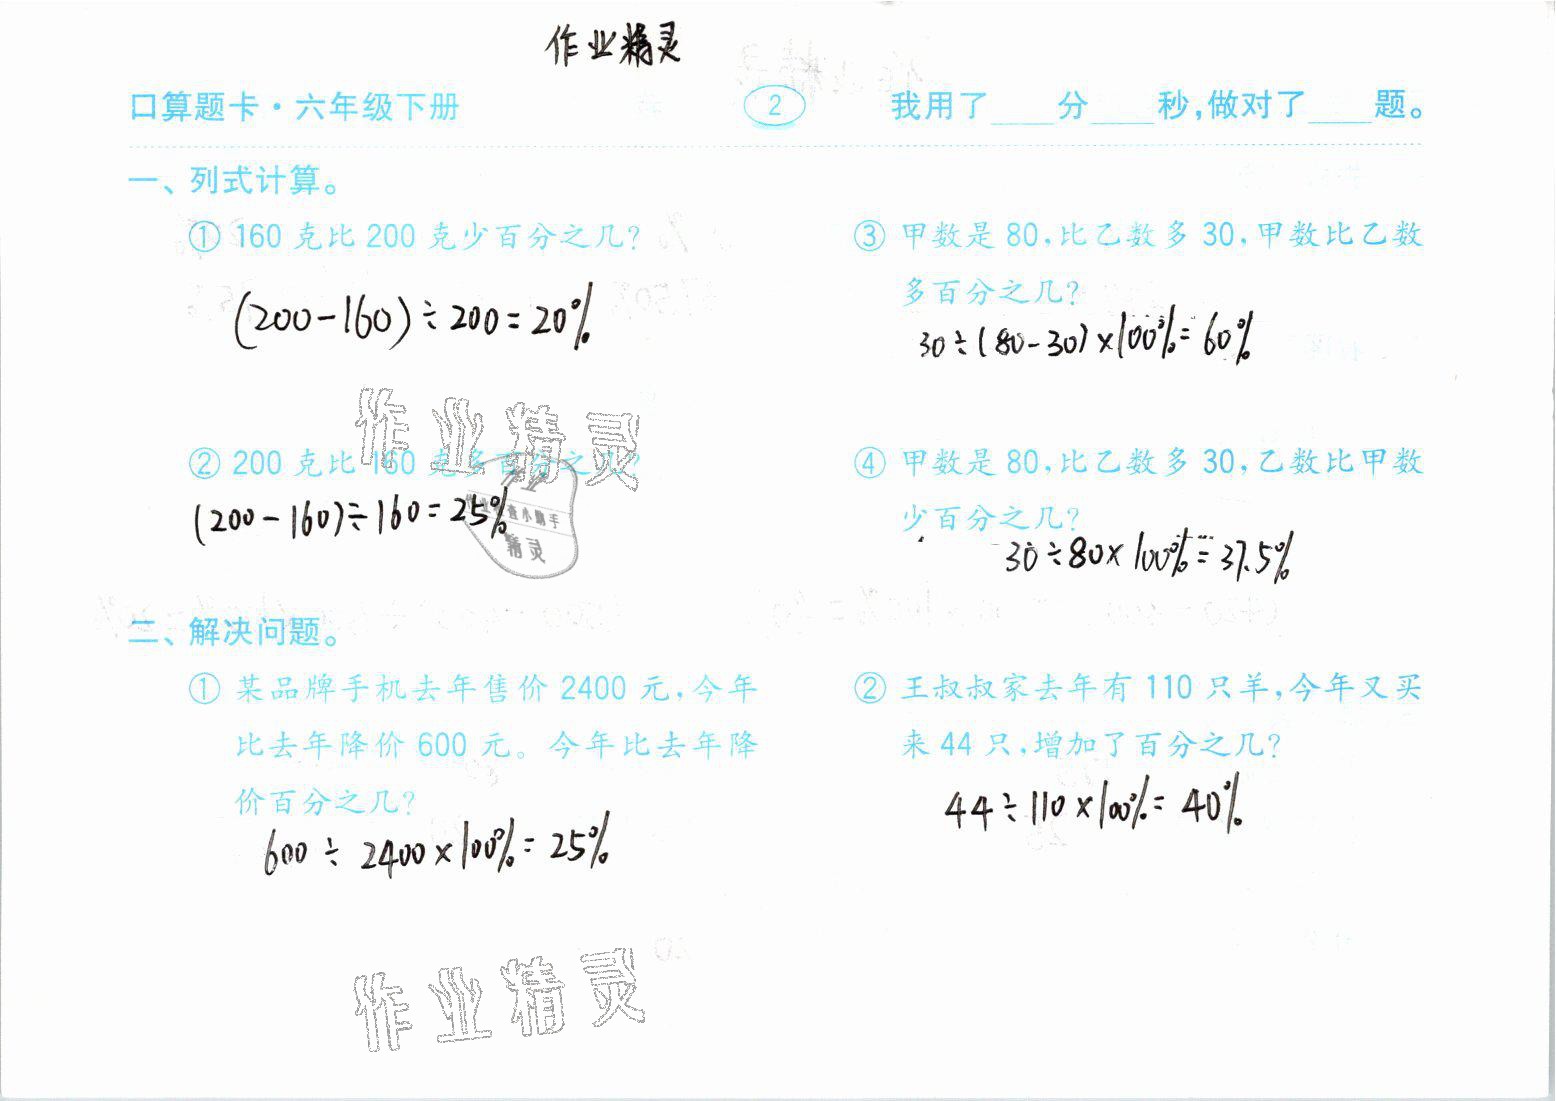 作业精灵
口算题卡·六年级下册 2 我用了____分____秒,做对了____题。
一、列式计算。
① 160 克比 200 克少百分之几?
(200-160)÷200=20%
② 200 克比 160 克多百分之几?
(200-160)÷160=25%
③ 甲数是 80,比乙数多 30,甲数比乙数
多百分之几?
30÷(80-30)×100%=60%
④ 甲数是 80,比乙数多 30,乙数比甲数
少百分之几?
30÷80×100%=37.5%
作业精灵
作业
精灵
二、解决问题。
① 某品牌手机去年售价 2400 元,今年
比去年降价 600 元。今年比去年降
价百分之几?
600÷2400×100%=25%
② 王叔叔家去年有 110 只羊,今年又买
来 44 只,增加了百分之几?
44÷110×100%=40%
作业精灵